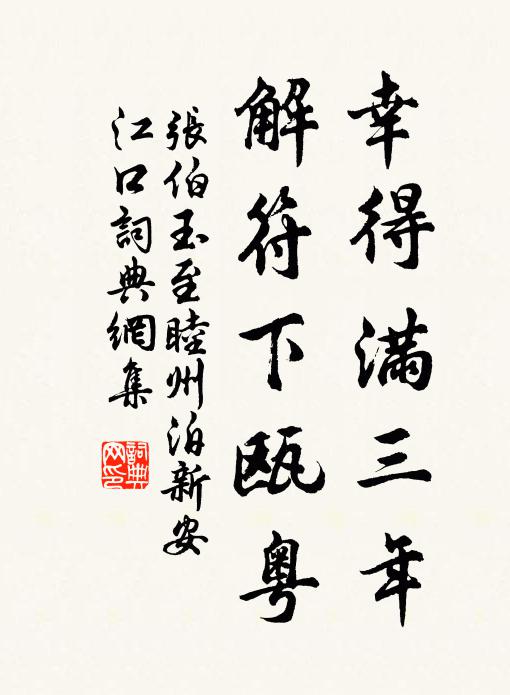 幸得滿三年
解符下甌粵
張伯玉至睦州泊新安
江口詞典網集
詞典
网印